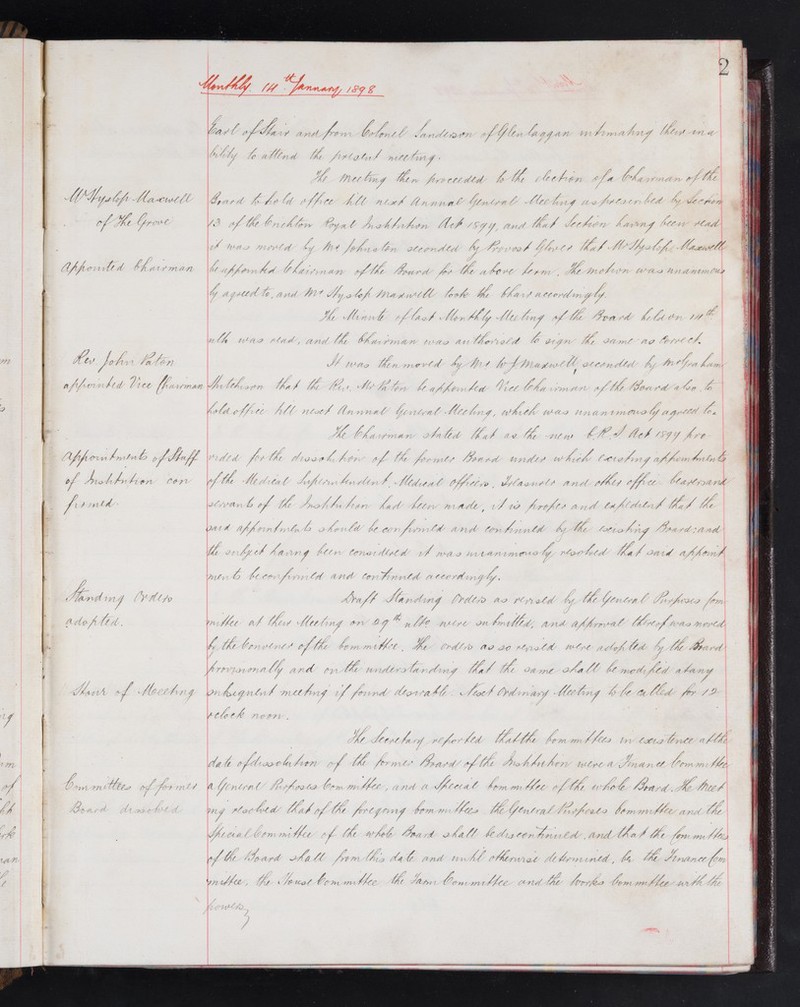 2
Monthly 14th January 1898
Earl of Stair and from Colonel Sanderson of Glenlaggan intimating their ina
bility to attend the present meeting.
The meeting then proceeded to the election of a Chairman of the
Mr Hyslop Maxwell
Board to hold office till next Annual General Meeting as prescribed by Section
of The Grove
13 of the Crichton Royal Institution Act 1897, and that Section having been read
it was moved by Mr Johnston seconded by Provost Glover that Mr Hyslop Maxwell
appointed Chairman
be appointed Chairman of the Board for the above term. The motion was unanimous
ly agreed to, and Mr Hyslop Maxwell took the Chair accordingly.
The Minute of last Monthly Meeting of the Board held on 14th
ulto was read, and the Chairman was authorised to sign the same as correct.
Rev John Paton
It was then moved by Mr W J Maxwell, seconded by Mr Graham
appointed Vice Chairman
Hutchison that the Rev. Mr Paton be appointed Vice Chairman of the Board also to
hold office till next Annual General Meeting, which was unanimously agreed to.
The Chairman stated that as the new C.R.I. Act 1897 pro
Appointments of Staff
vided for the dissolution of the former Board under which existing appointments
of Institution con
of the Medical Superintendent, Medical officers, Treasurer and other office bearers and
firmed.
servants of the Institution had been made, it is proper and expedient that the
said appointments should be confirmed and continued by the existing Board: and
the subject having been considered it was unanimously resolved that said appoint
ments be confirmed and continued accordingly.
Standing Orders
Draft Standing Orders as revised by the General Purposes Com
adopted.
mittee at their Meeting on 29th ulto were submitted, and approval thereof was moved
by the Convener of the Committee. The orders as so revised were adopted by the Board
provisionally and on the understanding that the same shall be modified at any
Hour of Meeting
subsequent meeting if found desirable. Next Ordinary Meeting to be called for 12
o'clock noon.
The Secretary reported that the Committees in existence at the
date of dissolution of the former Board of the Institution were a Finance Committee
Committees of former
a General Purposes Committee, and a Special Committee of the whole Board. The Meet
Board dissolved
ing resolved that of the foregoing Committees the General Purposes Committee and the
Special Committee of the whole Board shall be discontinued, and that the Committees
of the Board shall from this date and until otherwise determined, be the Finance Com
mittee, the House Committee the Farm Committee and the Works Committee with the
powers